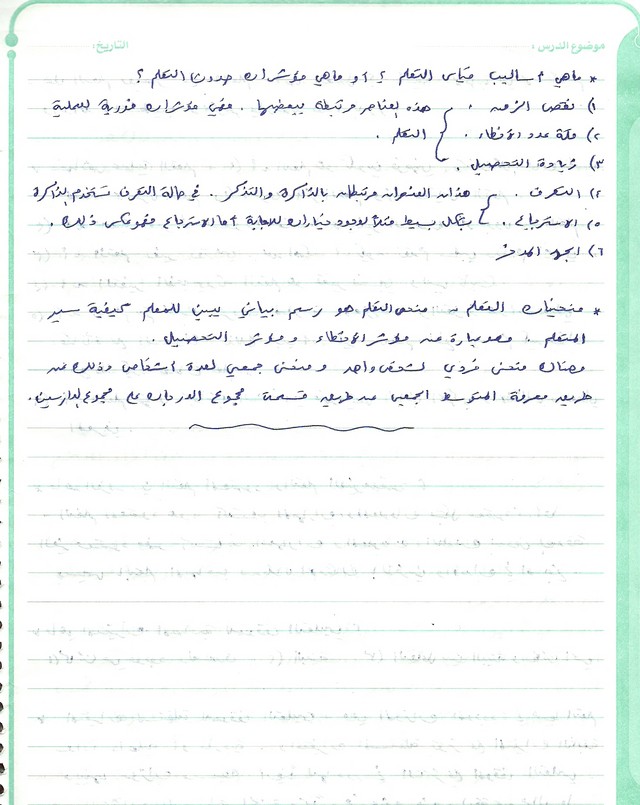 موضوع الدرس : التاريخ:
* ماهي أساليب قياس التعلم ؟ أو ماهي مؤشرات حدوث التعلم ؟
١) نقص الزمن . هذه العناصر مرتبطة ببعضها . فهي مؤشرات ضرورية لعملية
٢) قلة عدد الأخطاء . التعلم .
٣) زيادة التحصيل .
٤) التعرف . هذان العنصران مرتبطان بالذاكرة والتذكر . في حالة التعرف تستخدم الذاكرة
٥) الاسترجاع . بشكل بسيط مثلاً لوجود خيارات للاجابة أما الاسترجاع فهو عكس ذلك .
٦) الجهد المدخر
* منحنيات التعلم :- منحنى التعلم هو رسم بياني يبين للمعلم كيفية سير
المتعلم . وهو عبارة عن مؤشر الأخطاء ومؤشر التحصيل .
وهناك منحنى فردي لشخص واحد ومنحنى جمعي لعدة أشخاص وذلك عن
طريق معرفة المتوسط الجمعي عن طريق قسمة مجموع الدرجات على مجموع الدارسين .